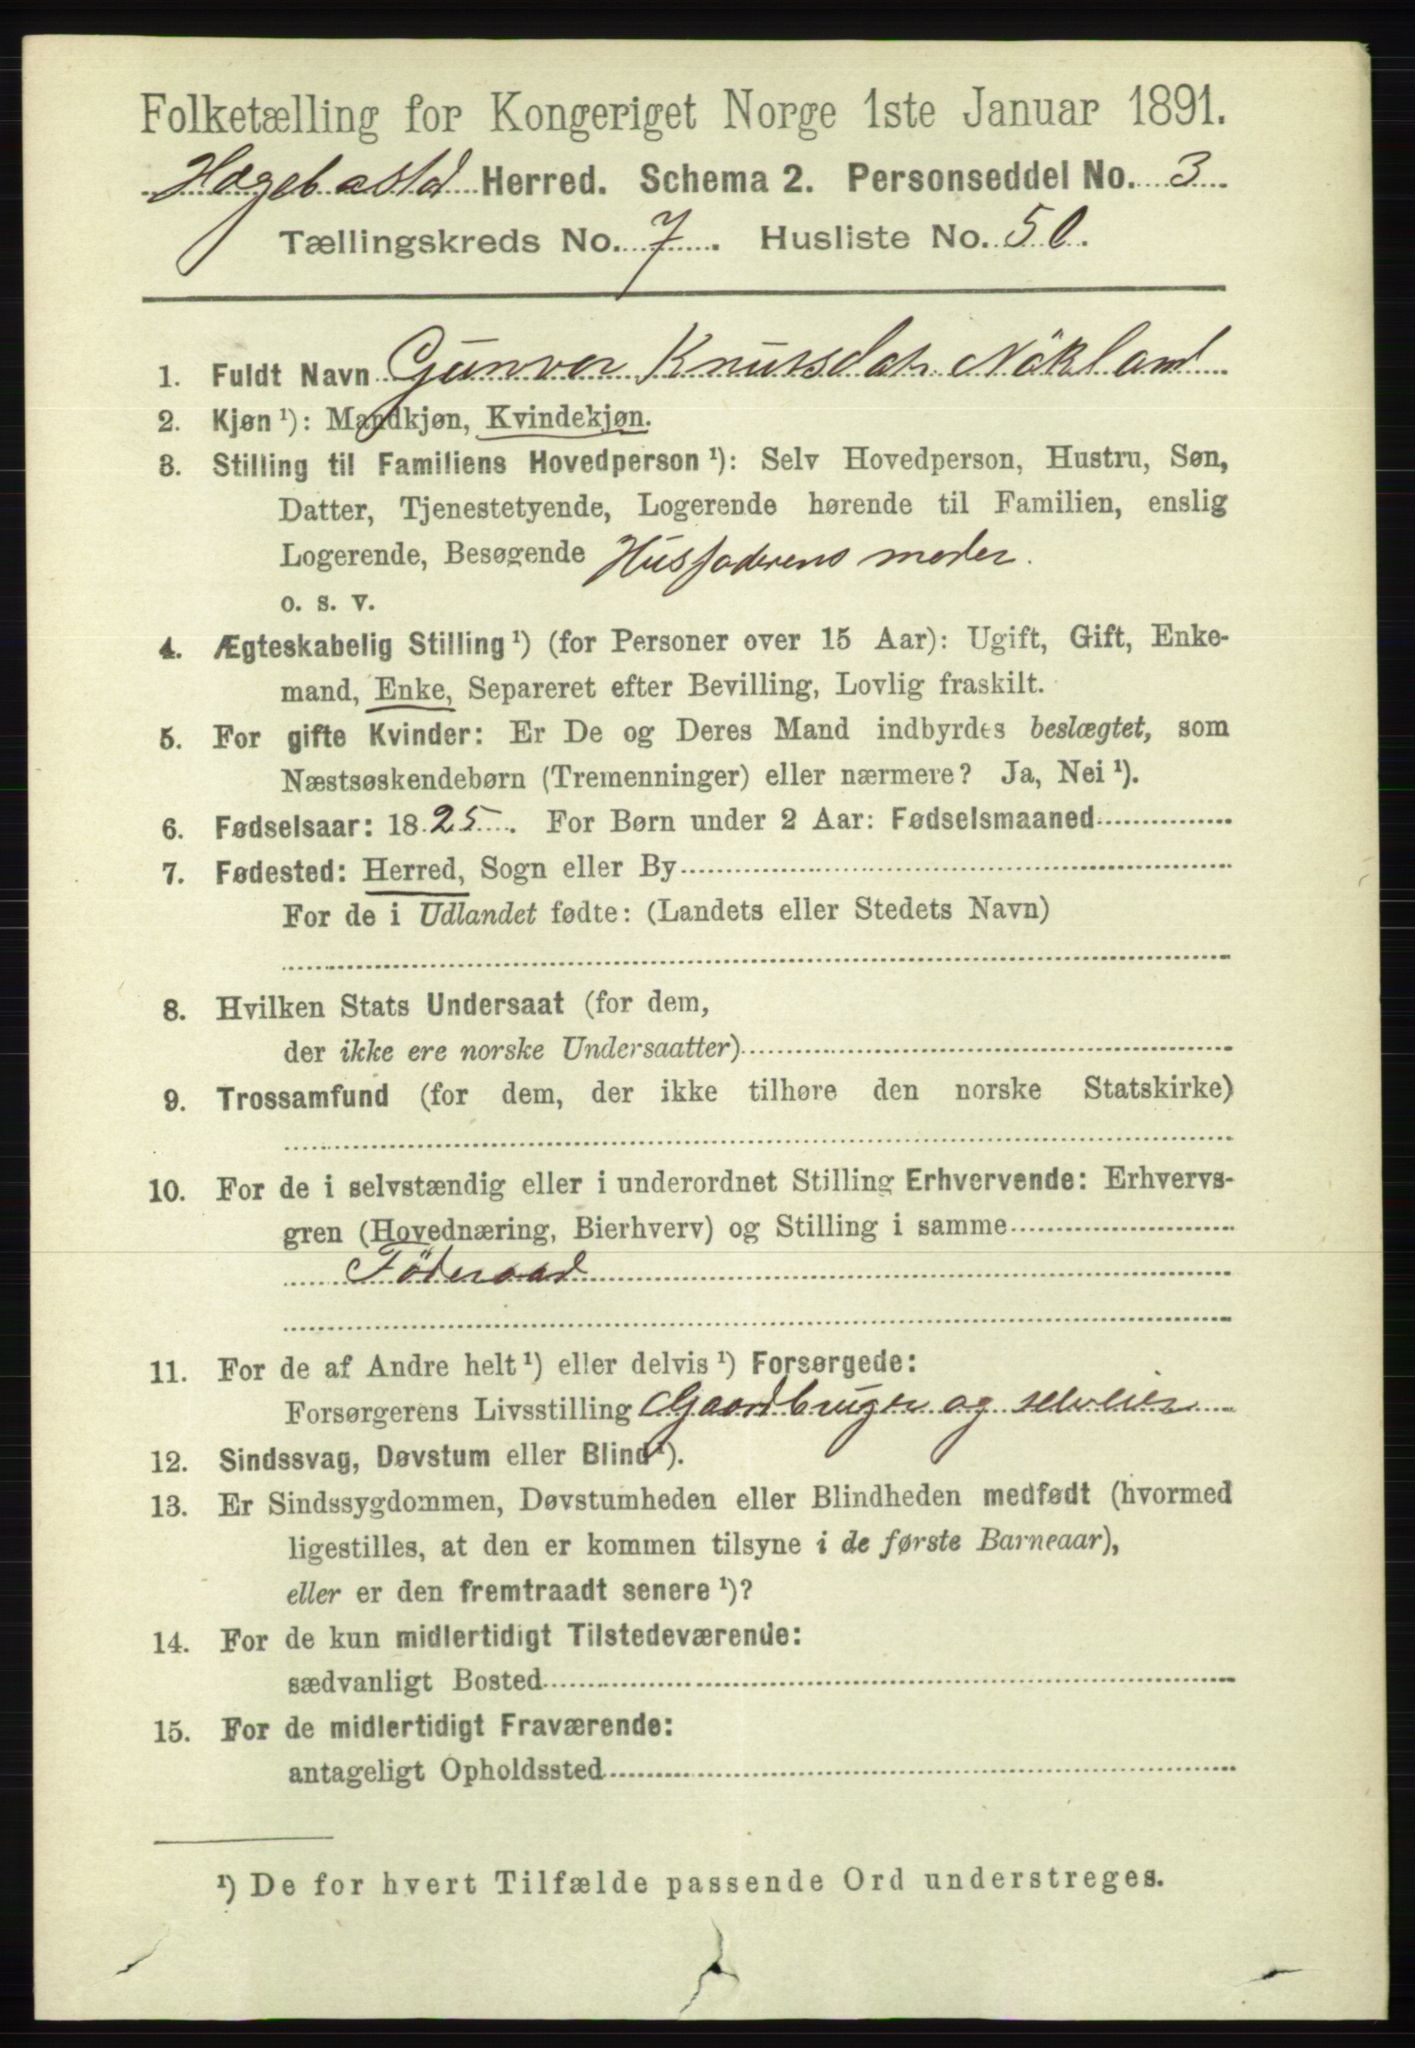 Folketælling for Kongeriget Norge 1ste Januar 1891.
Hægebostd Herred. Schema 2. Personseddel No. 3
Tællingskreds No. 7. Husliste No. 50.
1. Fuldt Navn Gunvor Knutsdatr. Nökland
2. Kjøn ¹): Mandkjøn, Kvindekjøn.
3. Stilling til Familiens Hovedperson ¹): Selv Hovedperson, Hustru, Søn,
Datter, Tjenestetyende, Logerende hørende til Familien, enslig
Logerende, Besøgende Husfaderens moder.
o. s. v.
4. Ægteskabelig Stilling ¹) (for Personer over 15 Aar): Ugift, Gift, Enke-
mand, Enke, Separeret efter Bevilling, Lovlig fraskilt.
5. For gifte Kvinder: Er De og Deres Mand indbyrdes beslægtet, som
Næstsøskendebørn (Tremenninger) eller nærmere? Ja, Nei ¹).
6. Fødselsaar: 1825. For Børn under 2 Aar: Fødselsmaaned
7. Fødested: Herred, Sogn eller By
For de i Udlandet fødte: (Landets eller Stedets Navn)
8. Hvilken Stats Undersaat (for dem,
der ikke ere norske Undersaatter)
9. Trossamfund (for dem, der ikke tilhøre den norske Statskirke)
10. For de i selvstændig eller i underordnet Stilling Erhvervende: Erhvervs-
gren (Hovednæring, Bierhverv) og Stilling i samme
Föderaad
11. For de af Andre helt ¹) eller delvis ¹) Forsørgede:
Forsørgerens Livsstilling Gaardbruger og selveier
12. Sindssvag, Døvstum eller Blind ¹).
13. Er Sindssygdommen, Døvstumheden eller Blindheden medfødt (hvormed
ligestilles, at den er kommen tilsyne i de første Barneaar),
eller er den fremtraadt senere ¹)?
14. For de kun midlertidigt Tilstedeværende:
sædvanligt Bosted
15. For de midlertidigt Fraværende:
antageligt Opholdssted
¹) De for hvert Tilfælde passende Ord understreges.